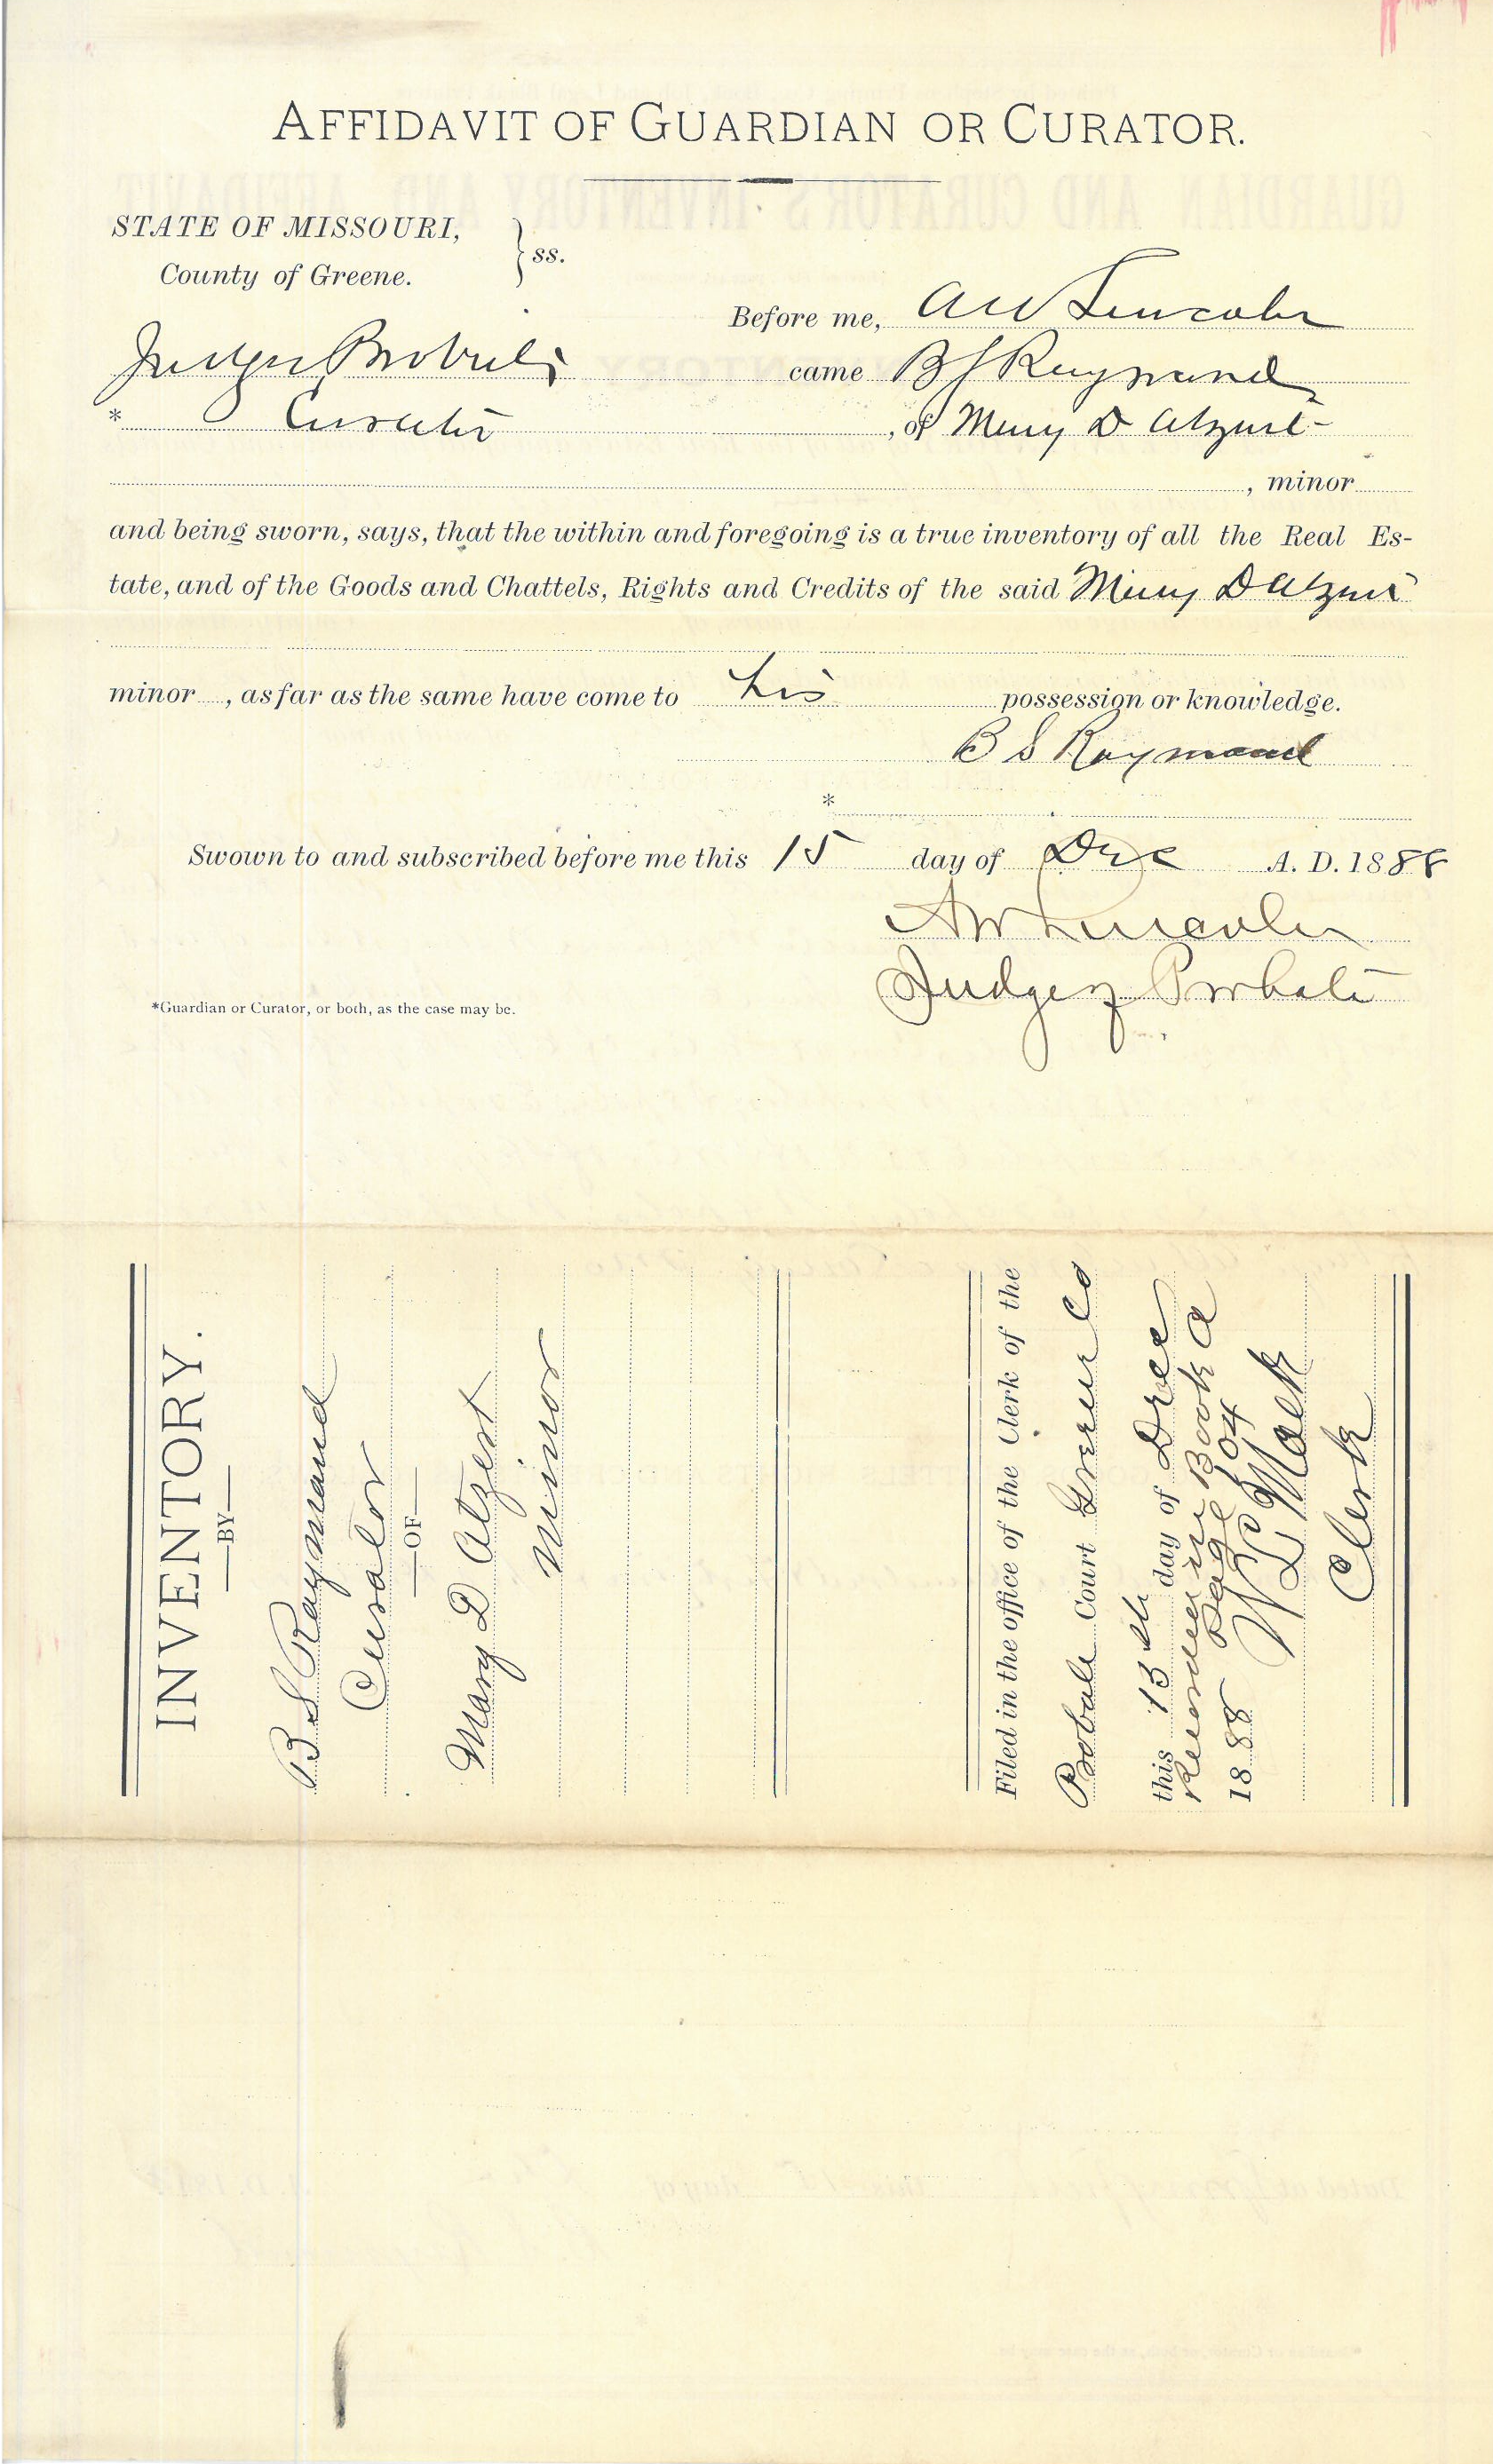 AFFIDAVIT OF GUARDIAN OR CURATOR.
STATE OF MISSOURI,
County of Greene.
} ss.
Before me, A W Lincoln
Judge Probate came B S Raymond
* Curator , of Mary D Atzert
, minor
and being sworn, says, that the within and foregoing is a true inventory of all the Real Es-
tate, and of the Goods and Chattels, Rights and Credits of the said Mary D Atzert
minor , as far as the same have come to his possession or knowledge.
B S Raymond
*
Swown to and subscribed before me this 15 day of Dec A. D. 1888
A W Lincoln
Judge of Probate
*Guardian or Curator, or both, as the case may be.
INVENTORY.
—BY—
B S Raymond
Curator
—OF—
Mary D Atzert
minor
Filed in the office of the Clerk of the
Probate Court Greene Co
this 13th day of Dec
Recorded in Book A
1888 Page 204
W L Mack
Clerk